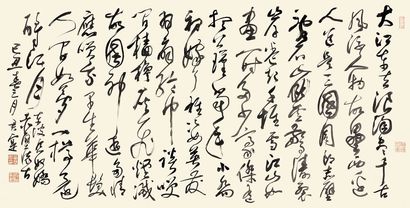 大江东去浪淘尽千古
风流人物故垒西边
人道是三国周郎赤壁
乱石
岸卷起千堆雪江山如
画一时多少豪杰遥
想公瑾当年小乔
初嫁了雄姿英发
羽扇纶巾谈笑
间樯橹灰飞烟灭
故国神游多情
应笑我早生华发
人间如梦一樽还
酹江月
赤壁怀古
己丑春三月